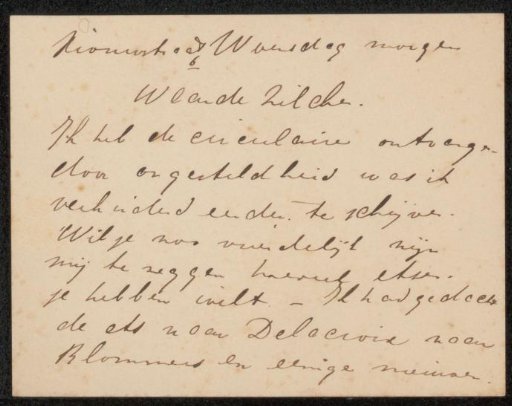 Woensdag morgen
Waarde Zilcken.
Ik heb de circulaire ontvangen
door ongesteldheid was ik
verhinderd eerder te schrijven.
Wil je nog vriendelijk zijn
mij te zeggen hoeveel etsen
je hebben wilt – Ik had gedacht
de ets naar Delacroix naar
Blommers en eenige nieuwe.